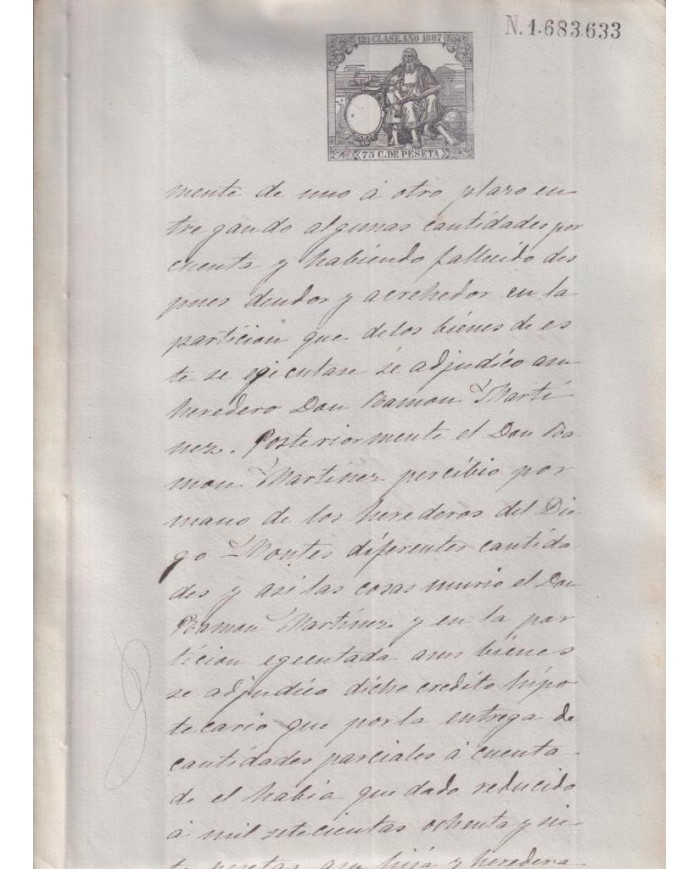 N. 1.683.633
12ª CLASE. AÑO 1887
75 C. DE PESETA
mente de uno á otro plazo en
tregando algunas cantidades por
cuenta y habiendo fallecido des
pues deudor y acrehedor en la
particion que delos biénes de es
te se egicutase se adjudico asu
heredero Don Ramon Marti
nez. Posteriormente el Don Ra
mon Martinez percibio por
mano de los herederos del Die
go Montes diferentes cantida
des y asi las cosas murio el Don
Ramon Martinez y en la par
ticion egecutada asus biénes
se adjudico dicho credito hipo
tecario que por la entrega de
cantidades parciales á cuenta
de el habia que dado reducido
á mil setecientas ochenta y sie
te pesetas asu hija y heredera